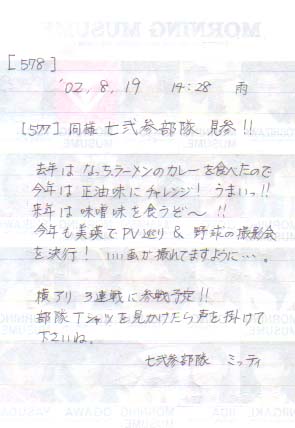 [578]
'02, 8, 19 14:28 雨
[577] 同様 七弐参部隊 見参!!
去年は なっちラーメンのカレーを食べたので
今年は 正油味にチャレンジ! うまいっ!!
来年は味噌味を食うぞ〜!!
今年も美瑛でPV巡り & 野球の撮影会
を決行! いい画が撮れてますように…。
横アリ 3連戦に参戦予定!!
部隊Tシャツを見かけたら声を掛けて
下さいね。
七弐参部隊 ミッティ
MORNING MUSUME
NIIGAKI
OGAWA
YASUDA